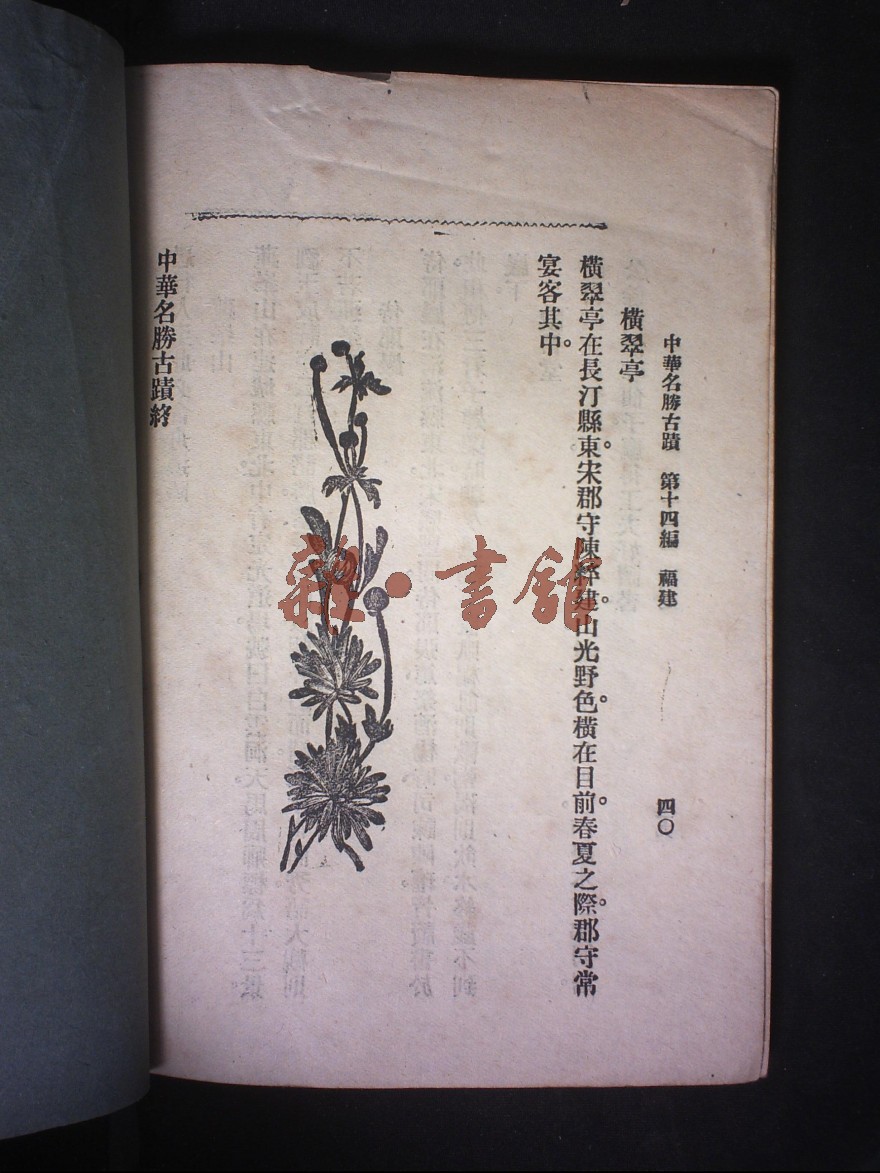 中華名勝古蹟 第十四編 福建 四〇
橫翠亭
橫翠亭在長汀縣東。宋郡守陳粹建。山光野色。橫在目前。春夏之際。郡守常
宴客其中。
中華名勝古蹟終
雜·書館